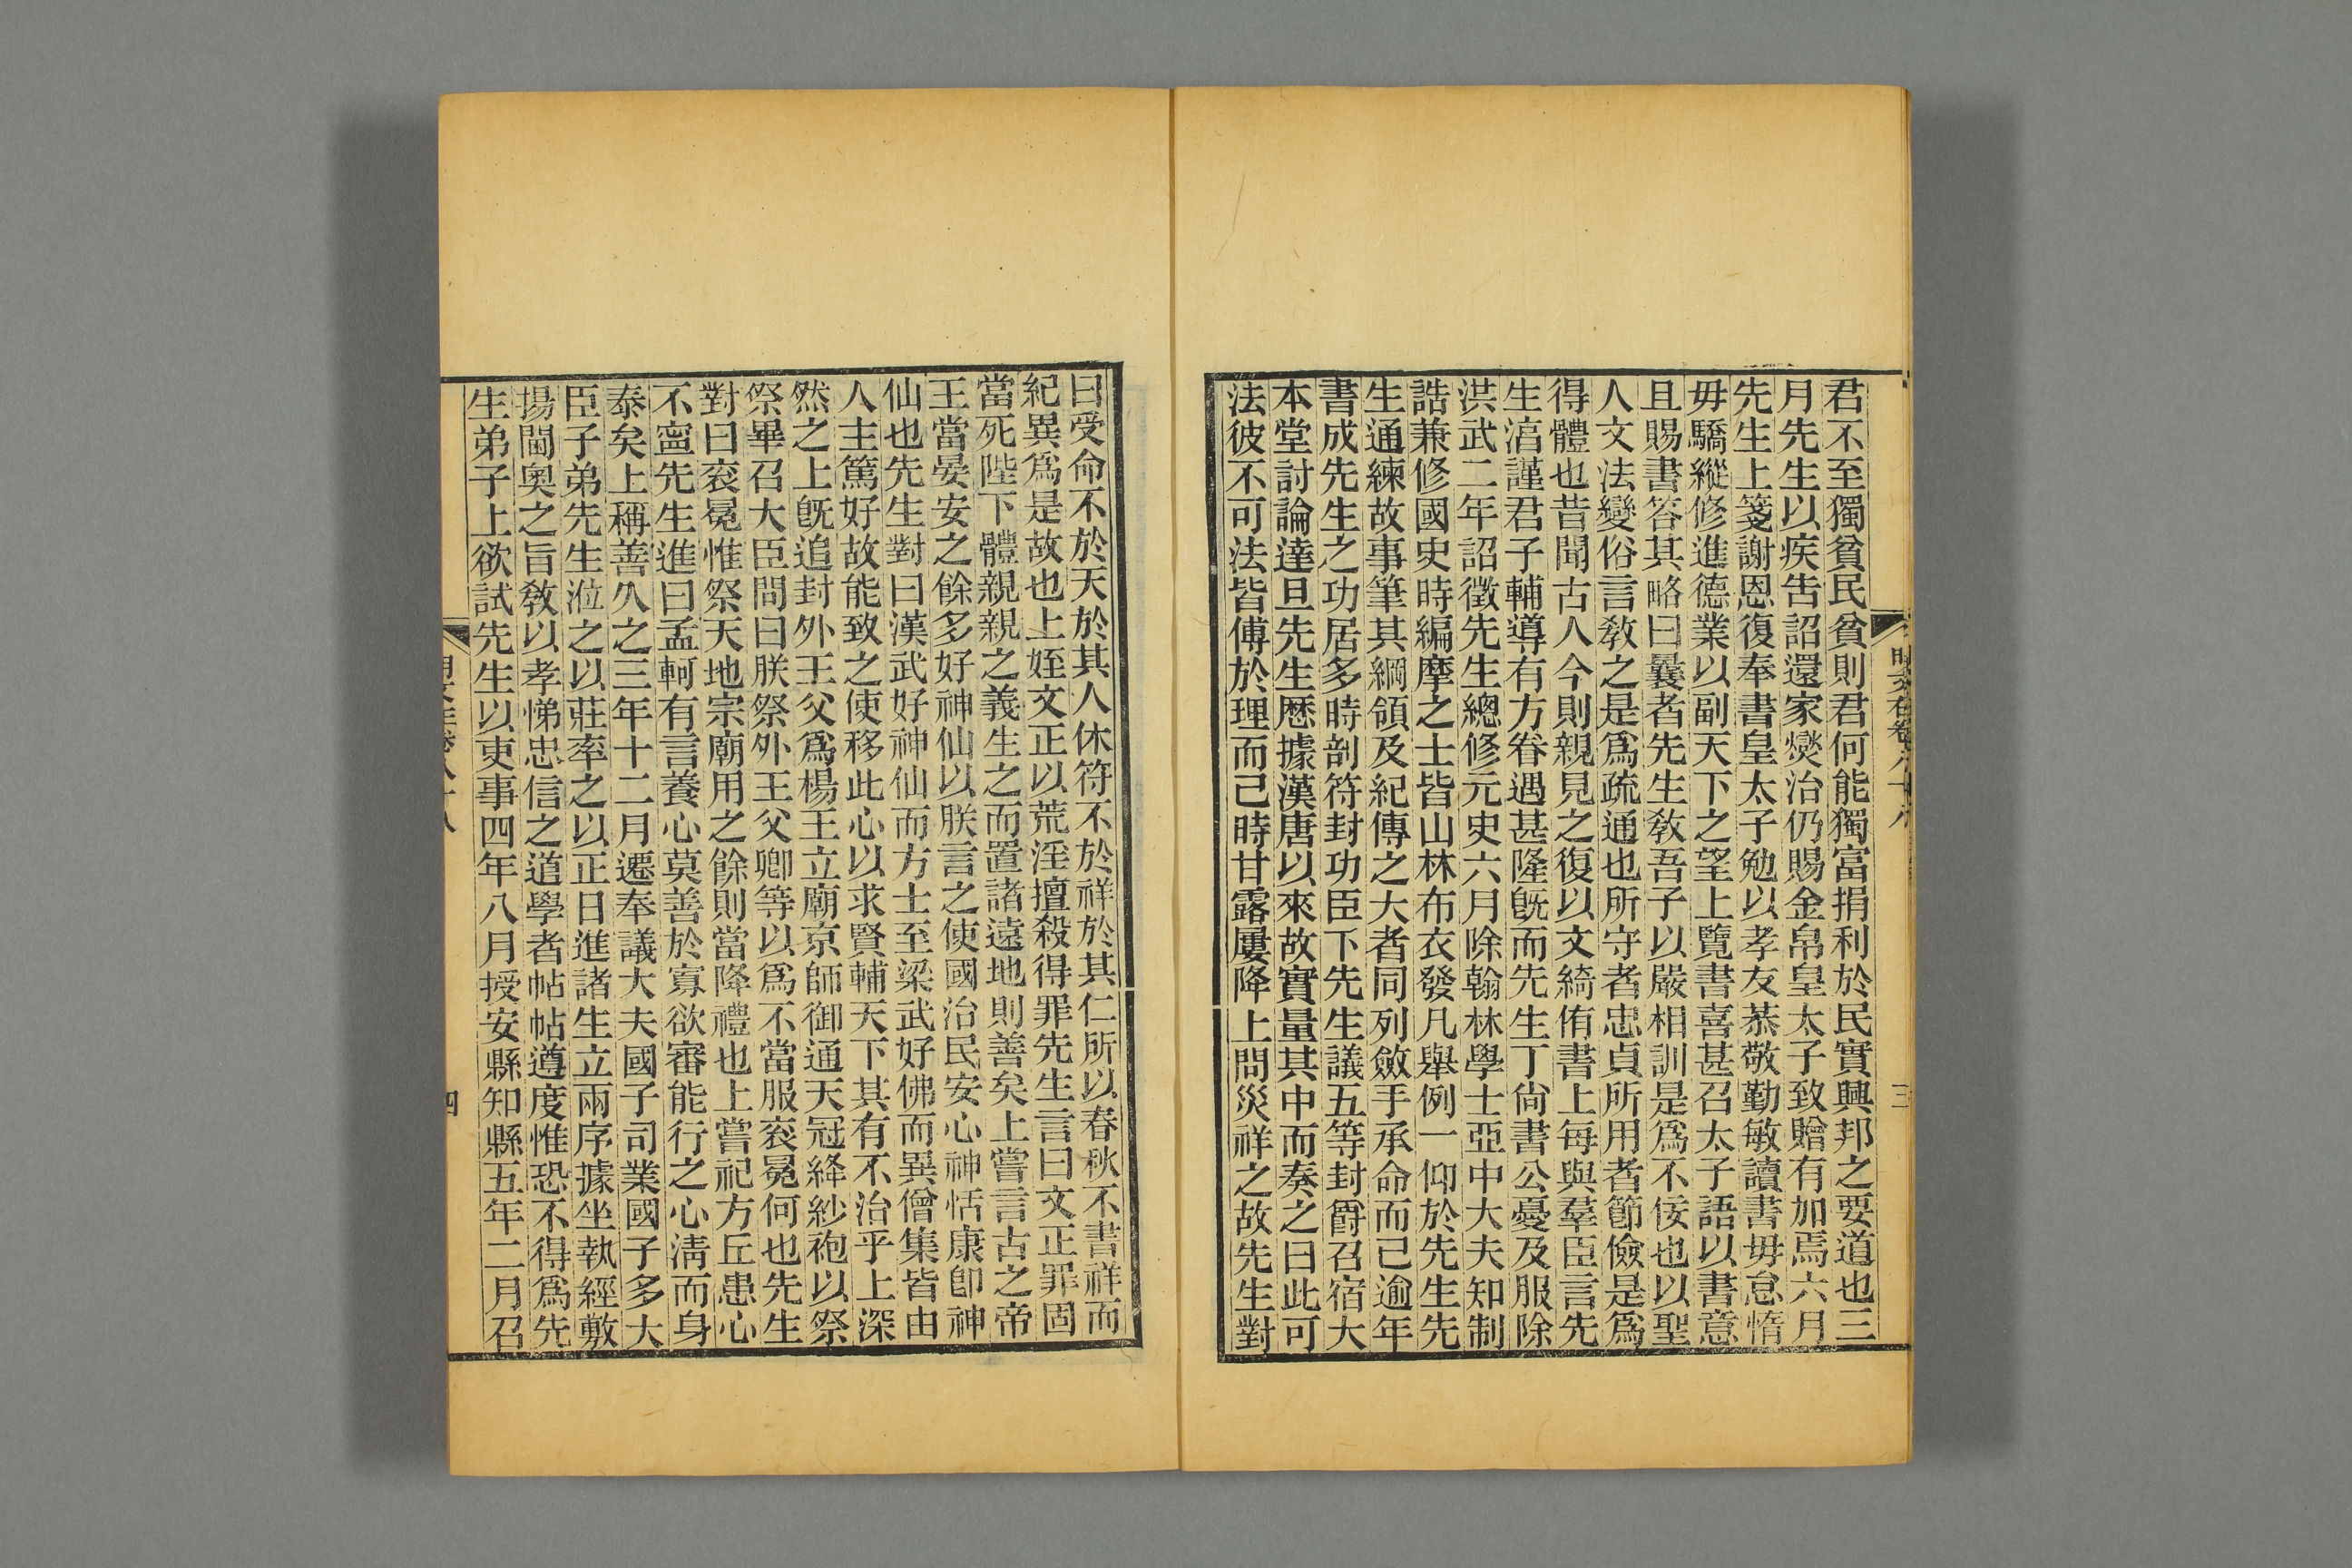 君不至獨貧民貧則君何能獨富捐利於民實興邦之要道也三
月先生以疾告詔還家燮治仍賜金帛皇太子致贈有加焉六月
先生上箋謝恩復奉書皇太子勉以孝友恭敬勤敏讀書毋怠惰
毋驕縱修進德業以副天下之望上覽書喜甚召太子語以書意
且賜書答其略曰曩者先生敎吾子以嚴相訓是爲不佞也以聖
人文法變俗言敎之是爲疏通也所守者忠貞所用者節儉是爲
得體也昔聞古人今則親見之復以文綺侑書上每與羣臣言先
生淯謹君子輔導有方眷遇甚隆旣而先生丁尙書公憂及服除
洪武二年詔徵先生總修元史六月除翰林學士亞中大夫知制
誥兼修國史時編摩之士皆山林布衣發凡舉例一仰於先生先
生通練故事筆其綱領及紀傳之大者同列斂手承命而已逾年
書成先生之功居多時剖符封功臣下先生議五等封爵召宿大
本堂討論達旦先生歷據漢唐以來故實量其中而奏之曰此可
法彼不可法皆傅於理而已時甘露屢降上問災祥之故先生對
曰受命不於天於其人休符不於祥於其仁所以春秋不書祥而
紀異爲是故也上姪文正以荒淫擅殺得罪先生言曰文正罪固
當死陛下體親親之義生之而置諸遠地則善矣上嘗言古之帝
王當晏安之餘多好神仙以朕言之使國治民安心神恬康卽神
仙也先生對曰漢武好神仙而方士至梁武好佛而異僧集皆由
人主篤好故能致之使移此心以求賢輔天下其有不治乎上深
然之上旣追封外王父爲楊王立廟京師御通天冠絳紗袍以祭
祭畢召大臣問曰朕祭外王父卿等以爲不當服衮冕何也先生
對曰衮冕惟祭天地宗廟用之餘則當降禮也上嘗祀方丘患心
不寍先生進曰孟軻有言養心莫善於寡欲審能行之心淸而身
泰矣上稱善久之三年十二月遷奉議大夫國子司業國子多大
臣子弟先生涖之以莊率之以正日進諸生立兩序據坐執經敷
揚閫奧之旨敎以孝悌忠信之道學者帖帖遵度惟恐不得爲先
生弟子上欲試先生以吏事四年八月授安縣知縣五年二月召
四